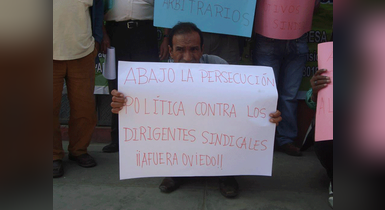 ARBITRARIOS
ABAJO LA PERSECUCIÓN
POLÍTICA CONTRA LOS
DIRIGENTES SINDICALES
¡¡AFUERA OVIEDO!!